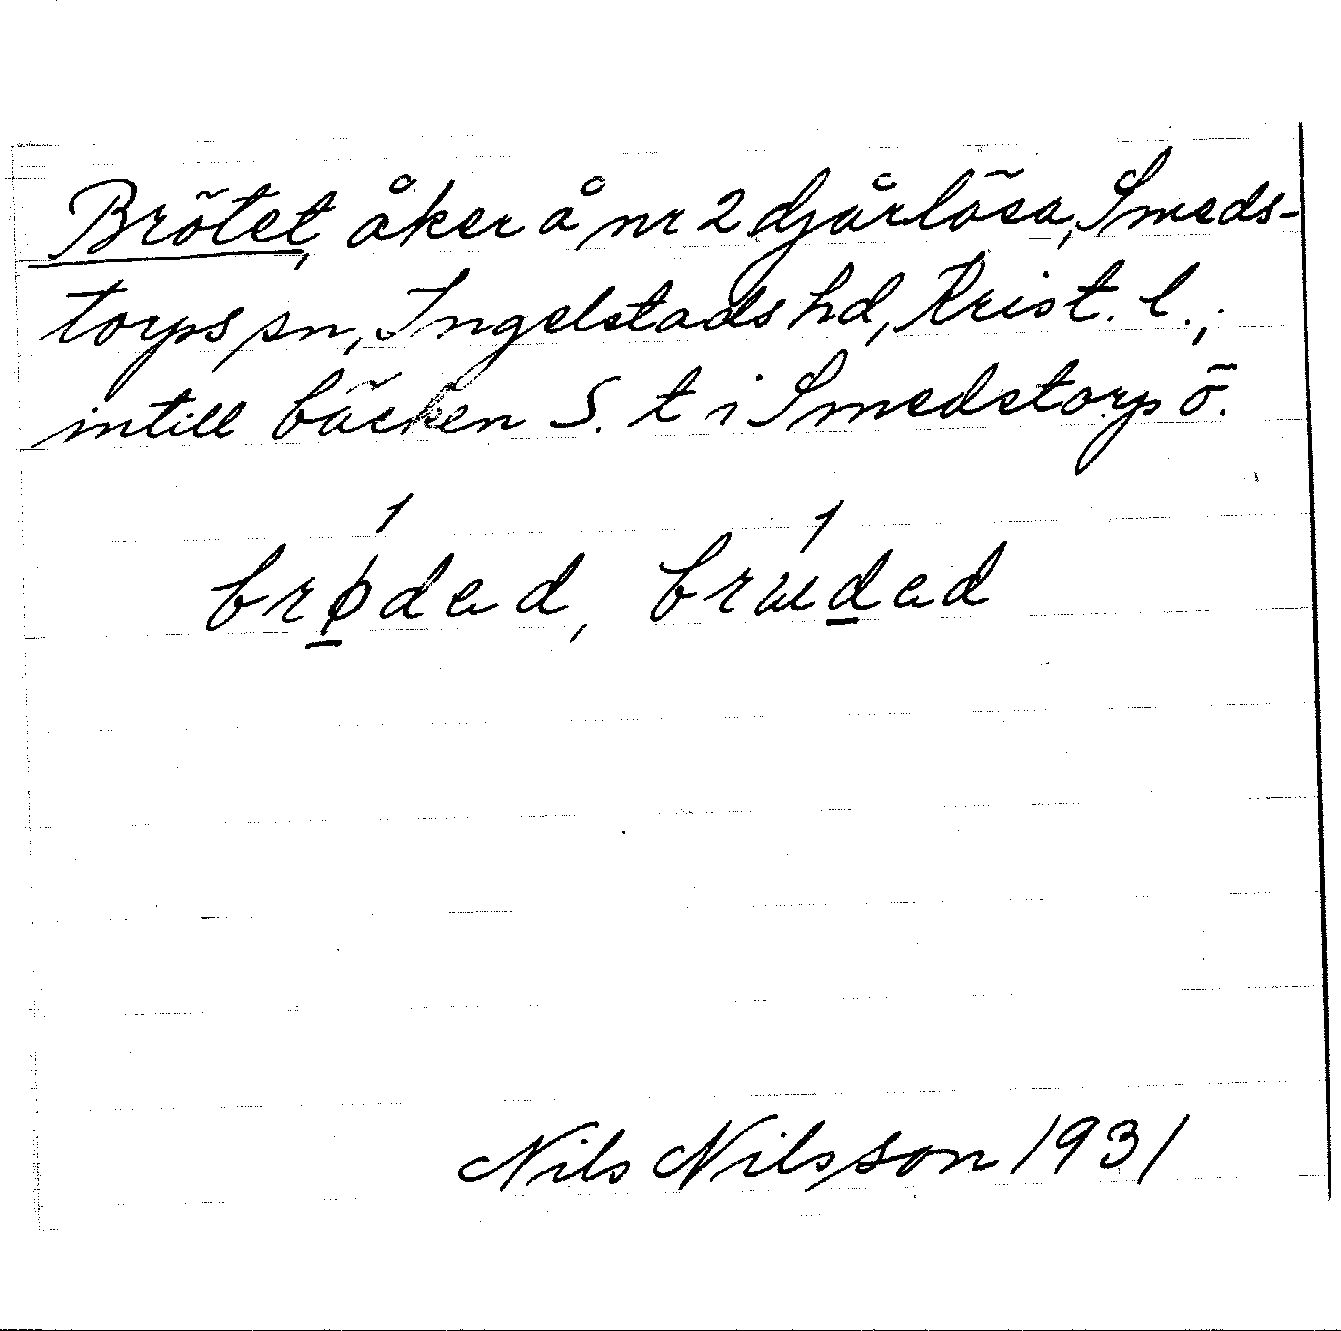 Brötet, åker å nr 2 Djärlösa, Smeds-
torps sn, Ingelstads hd, Krist. l.,
intill bäcken S. t i Smedstorp ö.
Nils Nilsson 1931